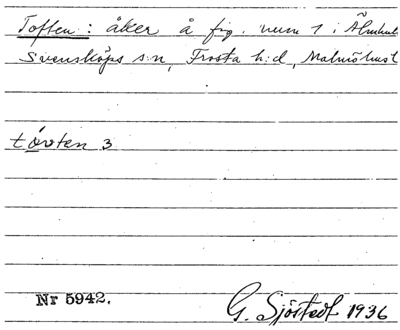 Toften: åker å fig. num 1 i Älmhul
Svensköps s:n, Frosta h:d, Malmöhusl
tớften 3
Nr 5942.
G. Sjöstedt 1936